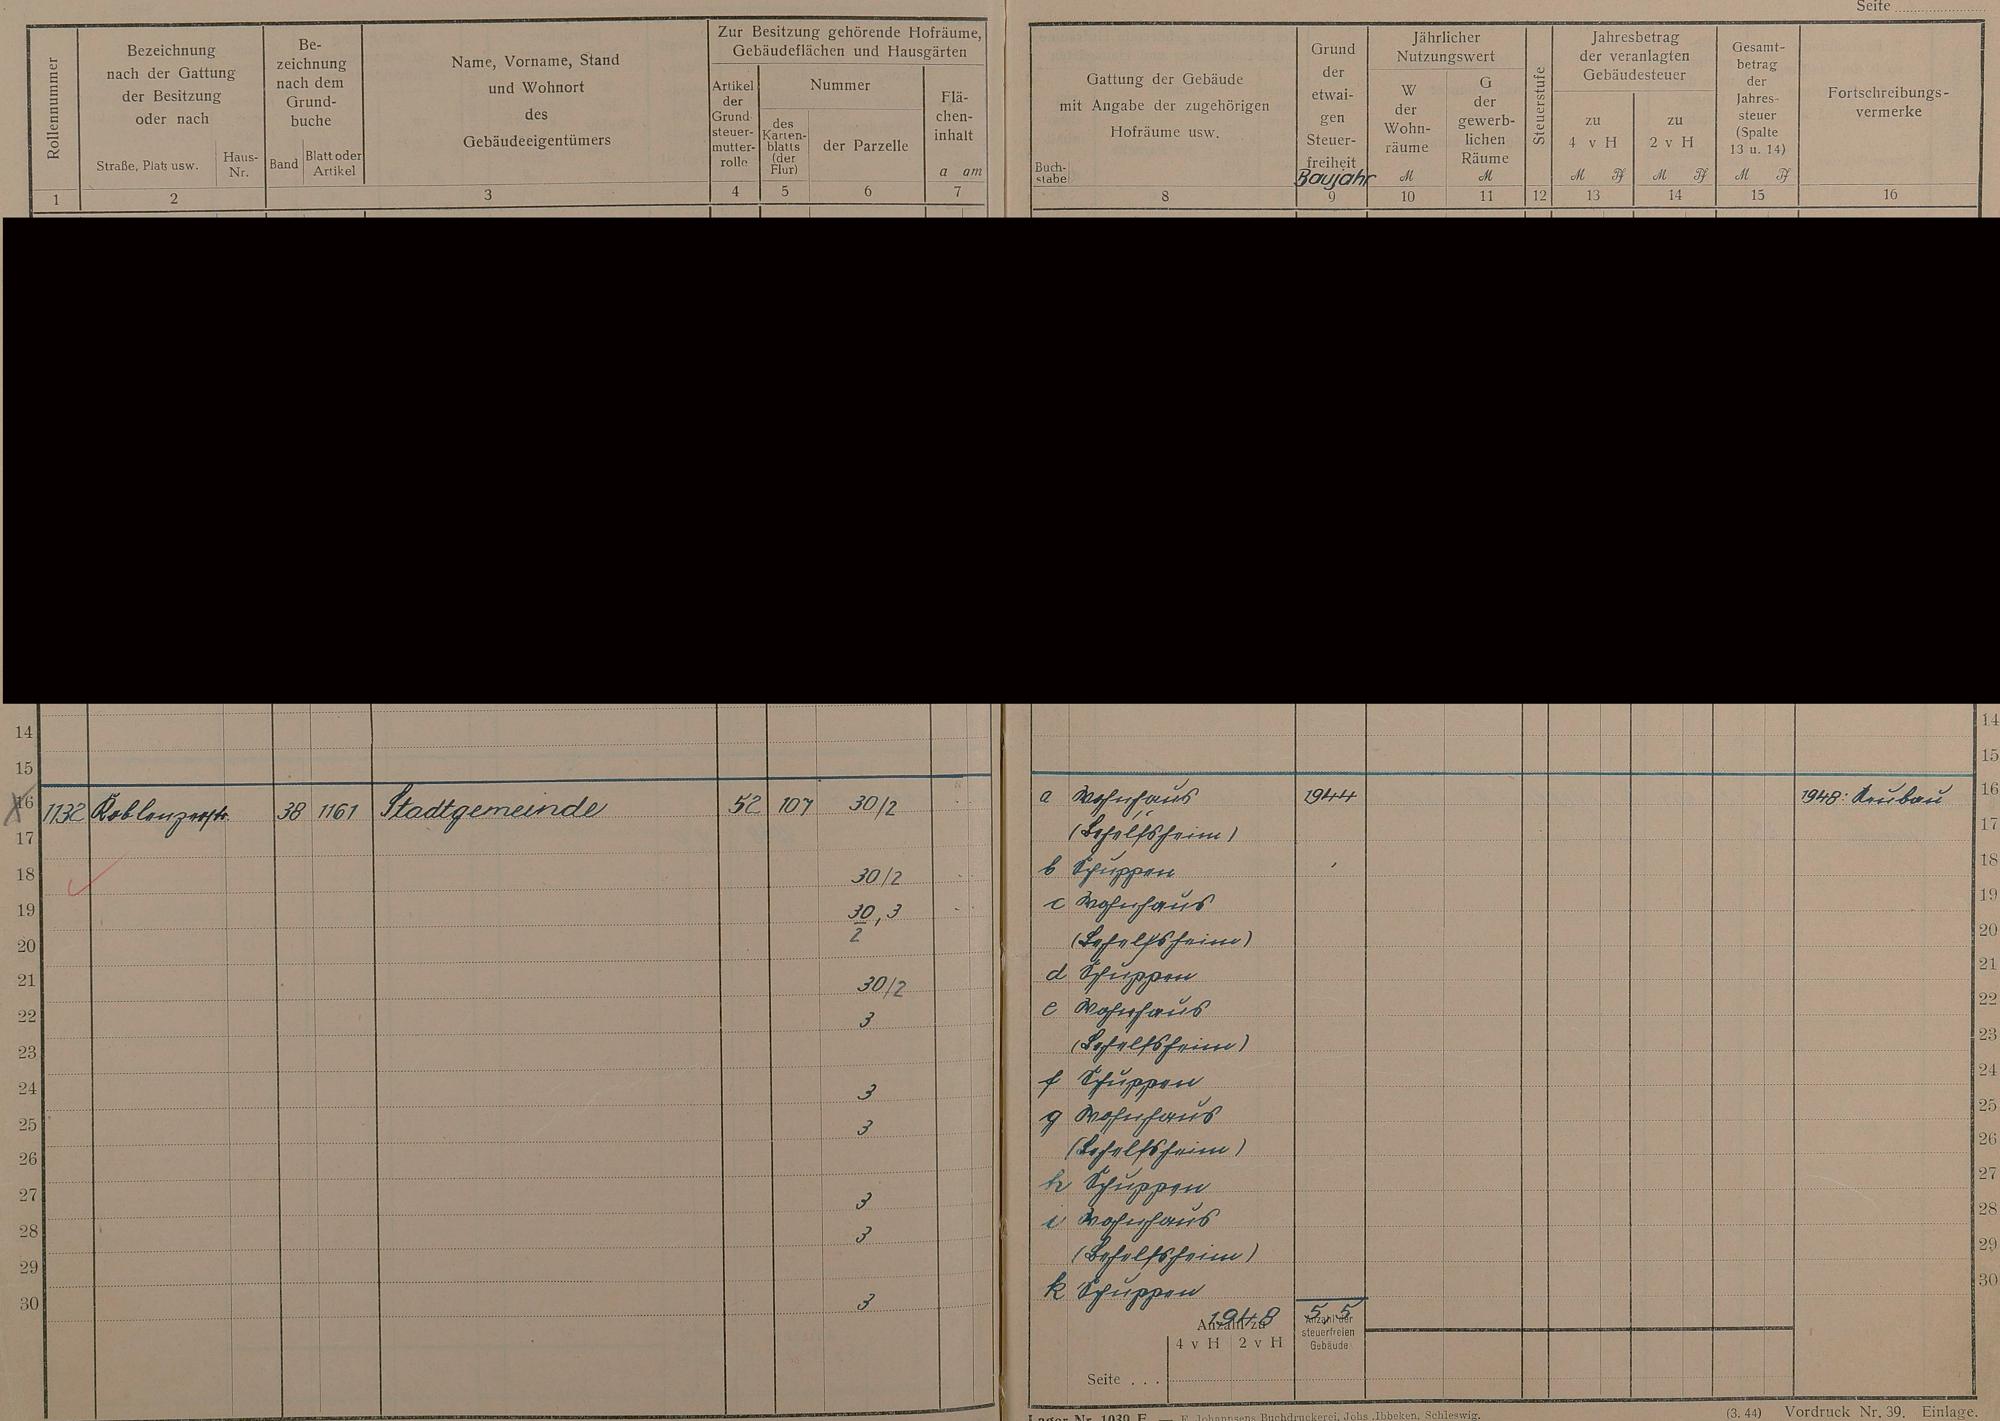 Seite
Rollennummer
Bezeichnung
nach der Gattung
der Besitzung
oder nach
Straße, Platz usw.
Haus-
Nr.
Be-
zeichnung
nach dem
Grund-
buche
Band
Blatt oder
Artikel
Name, Vorname, Stand
und Wohnort
des
Gebäudeeigentümers
Zur Besitzung gehörende Hofräume,
Gebäudeflächen und Hausgärten
Artikel
der
Grund-
steuer-
mutter-
rolle
Nummer
des
Karten-
blatts
(der
Flur)
der Parzelle
Flä-
chen-
inhalt
a qm
1 2 3 4 5 6 7
Buch-
stabe
Gattung der Gebäude
mit Angabe der zugehörigen
Hofräume usw.
Grund
der
etwai-
gen
Steuer-
freiheit
Baujahr
Jährlicher
Nutzungswert
W
der
Wohn-
räume
M
G
der
gewerb-
lichen
Räume
M
Steuerstufe
Jahresbetrag
der veranlagten
Gebäudesteuer
zu
4 v H
M Pf
zu
2 v H
M Pf
Gesamt-
betrag
der
Jahres-
steuer
(Spalte
13 u. 14)
M Pf
Fortschreibungs-
vermerke
8 9 10 11 12 13 14 15 16
14 14
15 15
16 1132 Koblenzerstr. 38 1161 Stadtgemeinde 52 107 30/2 a Wohnhaus 1944 1948: Neubau 16
17 (Behelfsheim) 17
18 30/2 b Schuppen 18
19 30/2, 3 c Wohnhaus 19
20 (Behelfsheim) 20
21 30/2 d Schuppen 21
22 3 e Wohnhaus 22
23 (Behelfsheim) 23
24 3 f Schuppen 24
25 3 g Wohnhaus 25
26 (Behelfsheim) 26
27 3 h Schuppen 27
28 3 i Wohnhaus 28
29 (Behelfsheim) 29
30 3 k Schuppen 30
1948 5, 5
Anzahl zu
4 v H 2 v H
Anzahl der
steuerfreien
Gebäude
Seite . . .
Lager Nr. 1039 E. — F. Johannsens Buchdruckerei, Johs. Ibbeken, Schleswig.
(3. 44) Vordruck Nr. 39. Einlage.